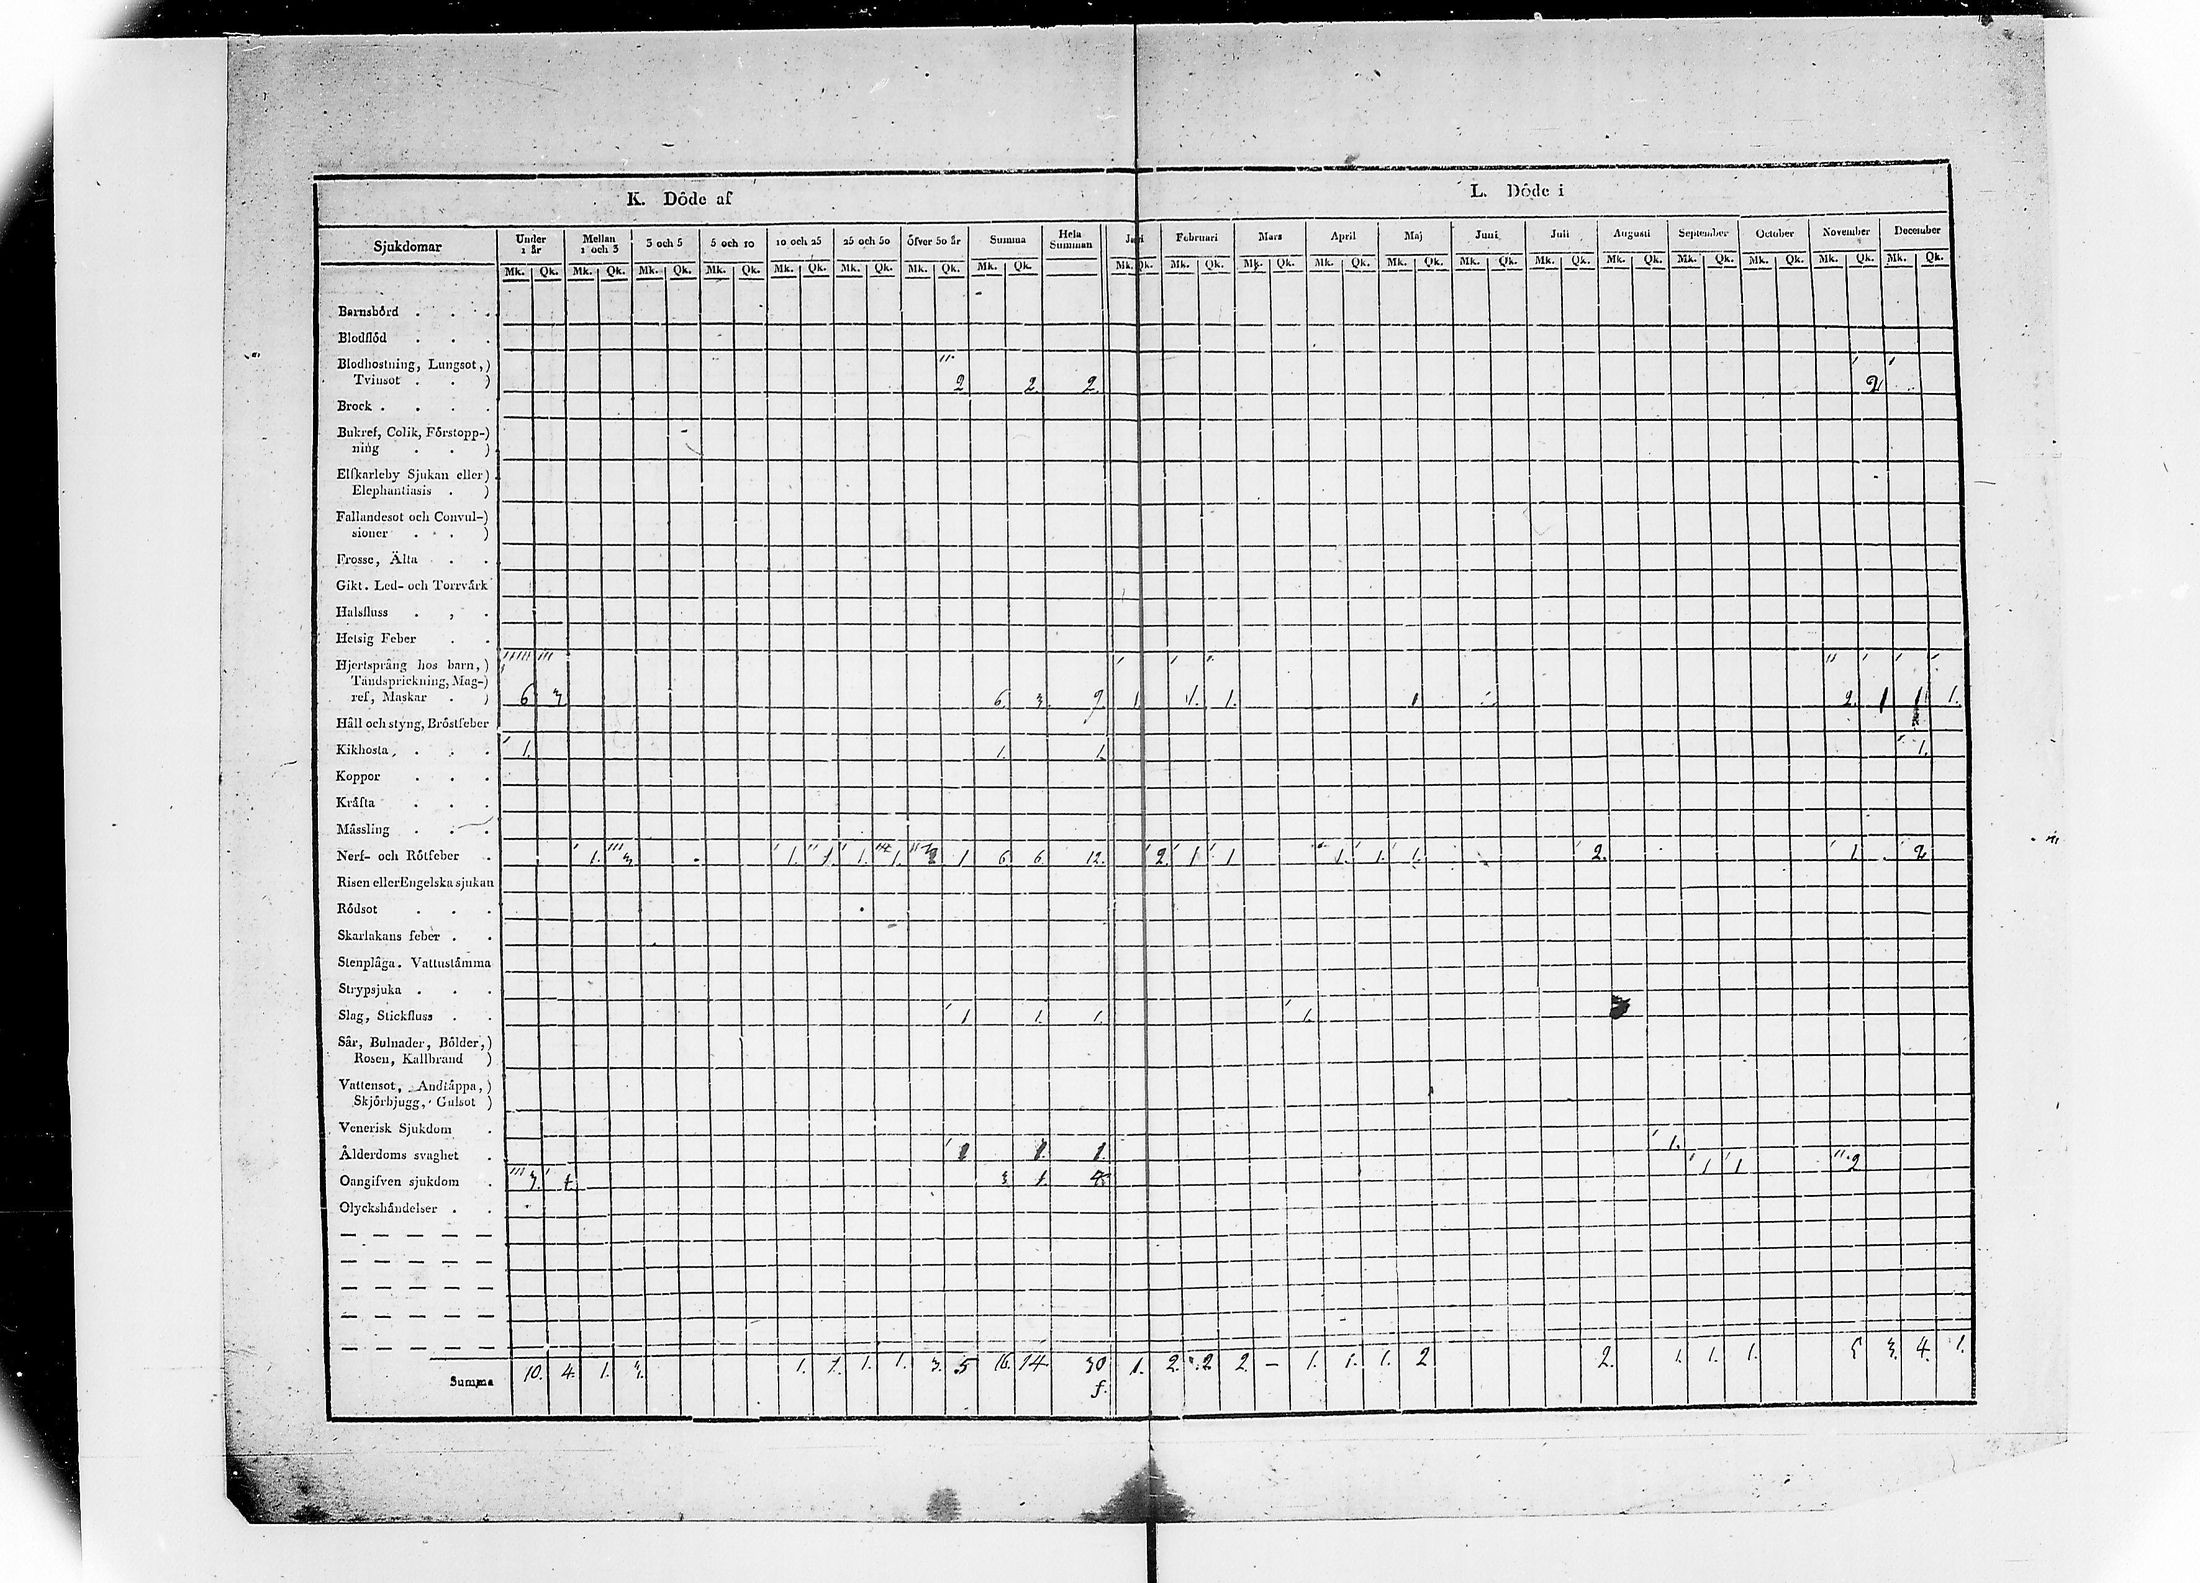 K. Döde af L. Döde i
Sjukdomar Under 1 år Mellan 1 och 3 3 och 5 5 och 10 10 och 25 25 och 50 öfver 50 år Summa Hela Summan Januari Februari Mars April Maj Juni Juli Augusti September October November December
Mk. Qk. Mk. Qk. Mk. Qk. Mk. Qk. Mk. Qk. Mk. Qk. Mk. Qk. Mk. Qk. Mk. Qk. Mk. Qk. Mk. Qk. Mk. Qk. Mk. Qk. Mk. Qk. Mk. Qk. Mk. Qk. Mk. Qk. Mk. Qk. Mk. Qk. Mk. Qk.
Barnsbörd . . .
Blodflöd . . .
Blodhostning, Lungsot,)
Tvinsot . . ) 2 2 2 2
Brock . . . .
Bukref, Colik, Förstopp-)
ning . . )
Elfkarleby Sjukan eller)
Elephantiasis . )
Fallandesot och Convul-)
sioner . . . )
Frosse, Älta . .
Gikt. Led- och Torrvärk
Halsfluss . , .
Hetsig Feber . .
Hjertsprång hos barn,)
Tandsprickning, Mag-)
ref, Maskar . ) 6 3 6. 3. 9. 1 1. 1. 1 2. 1 1 1.
Håll och styng, Bröstfeber
Kikhosta . . . 1. 1. 1. 1.
Koppor . . .
Kräfta . . .
Mässling . . .
Nerf- och Rötfeber . 1. 3. 1. 1. 1. 1. 2 1 6 6. 12. 2. 1 1 1. 1. 1. 2. 1. 2
Risen eller Engelska sjukan
Rödsot . . .
Skarlakans feber . .
Stenplåga. Vattustämma
Strypsjuka . . .
Slag, Stickfluss . . 1 1. 1. 1.
Sår, Bulnader, Bölder,)
Rosen, Kallbrand )
Vattensot, Andtäppa,)
Skjörbjugg, Gulsot )
Venerisk Sjukdom .
Ålderdoms svaghet . 1 1. 1. 1.
Oangifven sjukdom . 3. 1. 3 1. 4. 1 1 2
Olyckshändelser . .
Summa 10. 4. 1. 3. 1. 1. 1. 1. 3. 5 16. 14. 30 1. 2. 2 2. – 1. 1. 1. 2 2. 1. 1. 1. 5 3. 4. 1.
f.